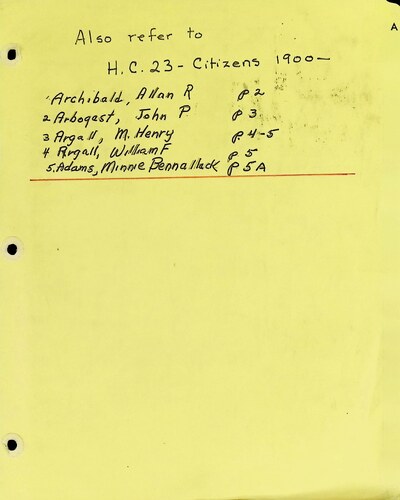 A
Also refer to
H.C. 23 - Citizens 1900-
1 Archibald, Allan R p 2
2 Arbogast, John P p 3
3 Argall, M. Henry p. 4-5
4 Argall, William F p. 5
5. Adams, Minnie Pennalluck p 5A